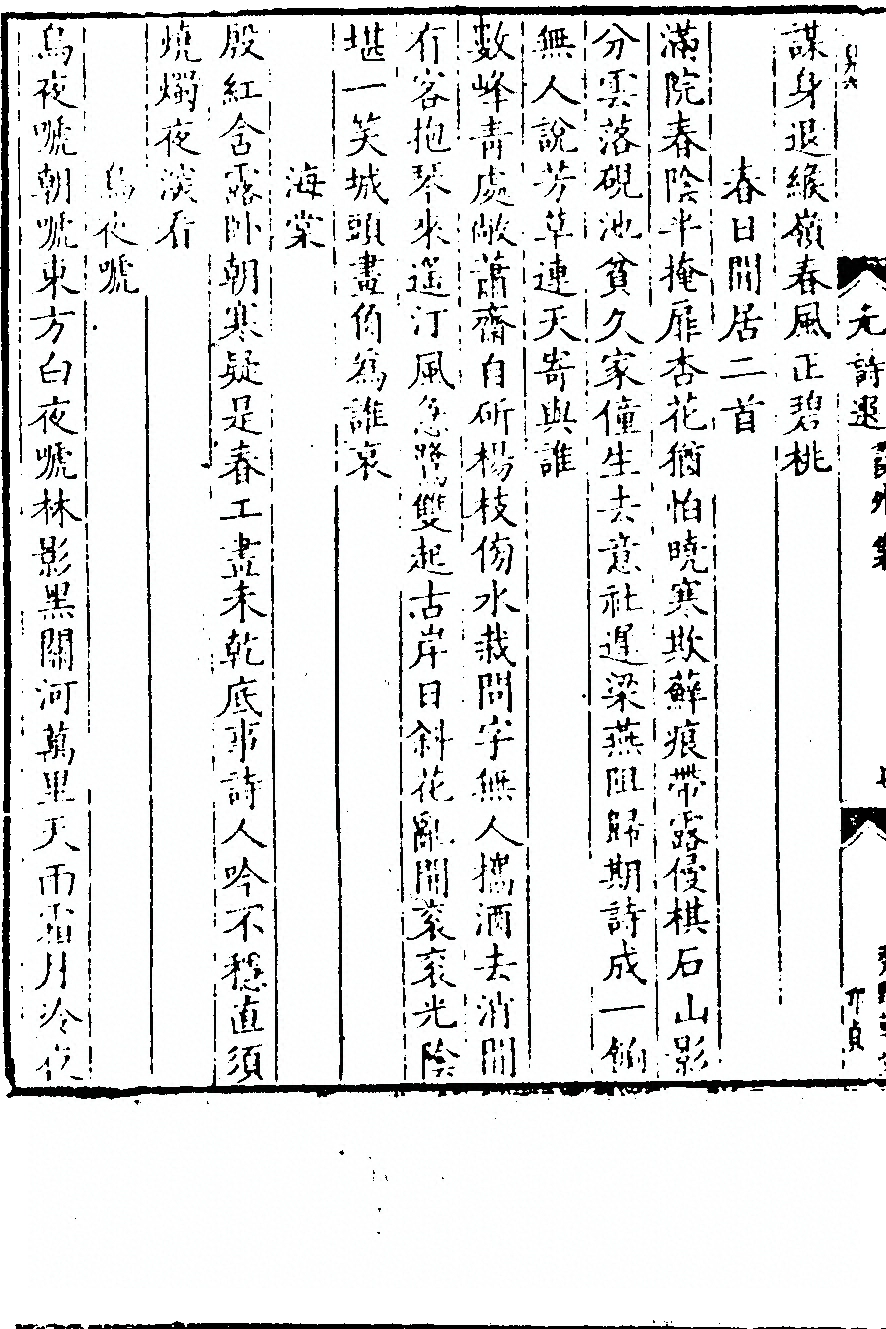 謀身退緱嶺春風正碧桃
春日閒居二首
滿院春陰半掩扉杏花猶怕曉寒欺蘚痕帶露侵棋石山影
分雲落硯池貧久家僮生去意社遲梁燕阻歸期詩成一餉
無人說芳草連天寄與誰
數峰青處敞蕭齋自斫楊枝傍水栽問字無人携酒去消閒
有客抱琴來遥汀風急鷺雙起古岸日斜花亂開衮衮光陰
堪一笑城頭畫角爲誰哀
海棠
殷紅含露卧朝寒疑是春工畫未乾底事詩人吟不穩直須
燒燭夜深看
烏夜嗁
烏夜嗁朝嗁東方白夜嗁林影黑關河萬里天雨霜月冷夜
元詩選